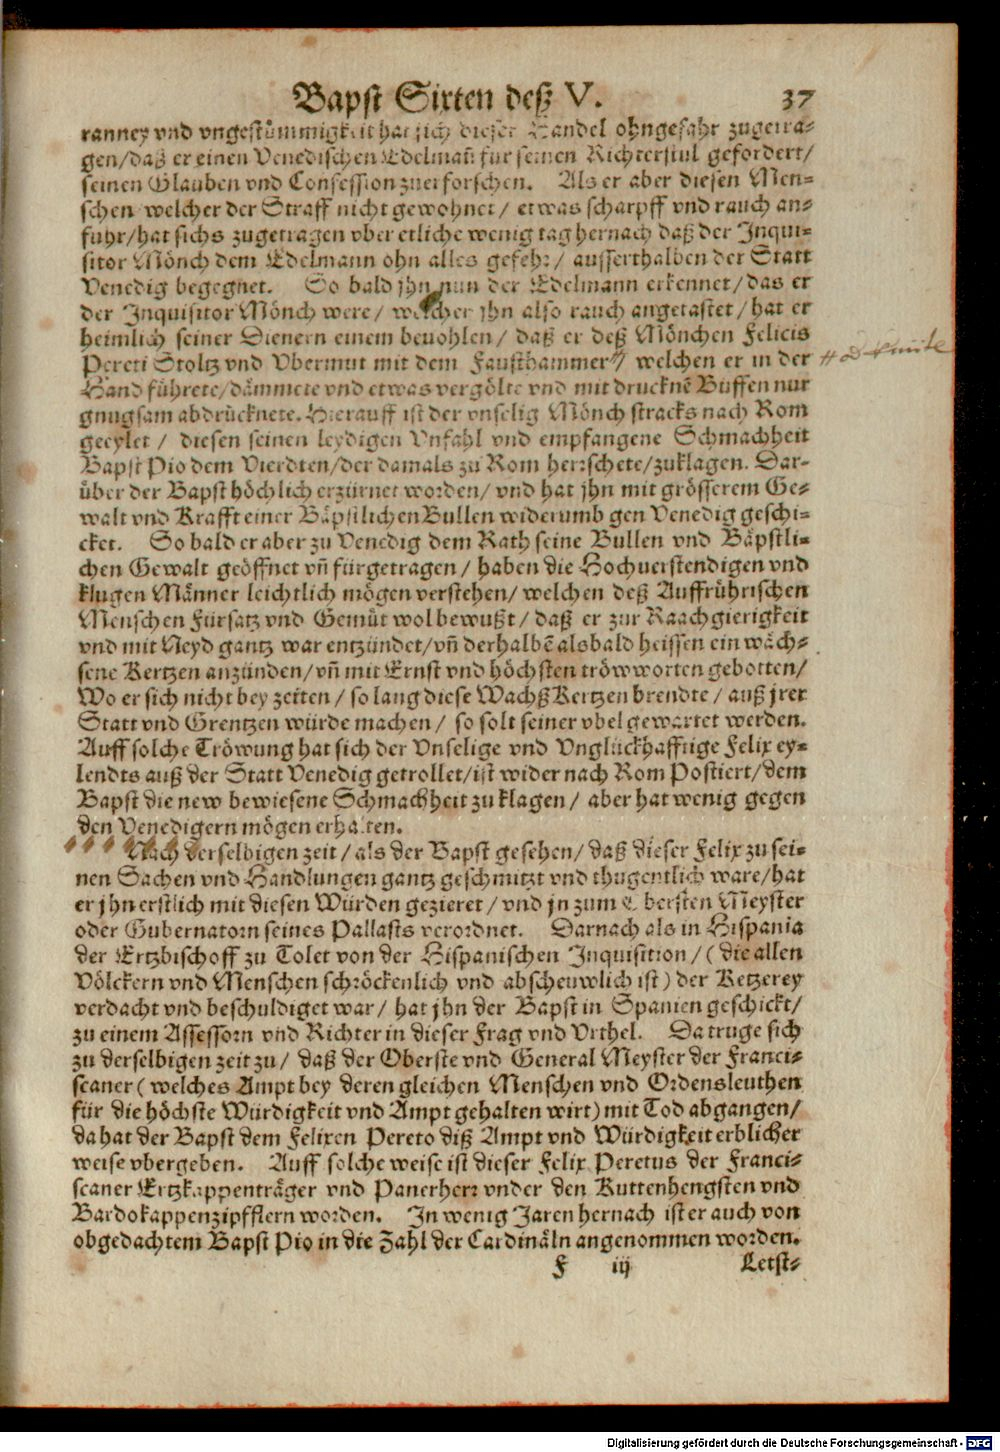 Bapst Sixten deß V. 37
ranney vnd vngestümmigkeit hat sich dieser Handel ohngefahr zugetra-
gen/daß er einen Venedischen Edelmañ für seinen Richterstul gefordert/
seinen Glauben vnd Confession zuerforschen. Als er aber diesen Men-
schen welcher der Straff nicht gewohnet/ etwas scharpff vnd rauch an-
fuhr/hat sichs zugetragen vber etliche wenig tag hernach daß der Inqui-
sitor Mönch dem Edelmann ohn alles gefehr/ ausserthalben der Statt
Venedig begegnet. So bald jhn nun der Edelmann erkennet/das er
der Inquisitor Mönch were/ welcher jhn also rauch angetastet/hat er
heimlich seiner Dienern einem beuohlen/ daß er deß Mönchen Felicis
Pereti Stoltz vnd Vbermut mit dem Fausthammer/ welchen er in der
Hand führete/dämmete vnd etwas vergölte vnd mit drucknẽ Büffen nur
gnugsam abdrücknete. Hierauff ist der vnselig Mönch stracks nach Rom
geeylet/ diesen seinen leydigen Vnfahl vnd empfangene Schmachheit
Bapst Pio dem Vierdten/der damals zu Rom herrschete/zuklagen. Dar-
über der Bapst höchlich erzürnet worden/ vnd hat jhn mit grösserem Ge-
walt vnd Krafft einer Bäpstlichen Bullen widerumb gen Venedig geschi-
cket. So bald er aber zu Venedig dem Rath seine Bullen vnd Bäpstli-
chen Gewalt geöffnet vñ fürgetragen/ haben die Hochuerstendigen vnd
klugen Männer leichtlich mögen verstehen/ welchen deß Auffrührischen
Menschen Fürsatz vnd Gemüt wol bewußt/ daß er zur Raachgierigkeit
vnd mit Neyd gantz war entzündet/vñ derhalbẽ alsbald heissen ein wäch-
sene Kertzen anzünden/vñ mit Ernst vnd höchsten tröwworten gebotten/
Wo er sich nicht bey zeiten/ so lang diese WachßKertzen brendte/ auß jrer
Statt vnd Grentzen würde machen/ so solt seiner vbel gewartet werden.
Auff solche Tröwung hat sich der Vnselige vnd Vnglückhafftige Felix ey-
lendts auß der Statt Venedig getrollet/ist wider nach Rom Postiert/dem
Bapst die new bewiesene Schmachheit zu klagen/ aber hat wenig gegen
den Venedigern mögen erhalten.
Nach derselbigen zeit/ als der Bapst gesehen/ daß dieser Felix zu sei-
nen Sachen vnd Handlungen gantz geschmitzt vnd thugentlich ware/hat
er jhn erstlich mit diesen Würden gezieret/ vnd jn zum Obersten Meyster
oder Gubernatorn seines Pallasts verordnet. Darnach als in Hispania
der Ertzbischoff zu Tolet von der Hispanischen Inquisition/ (die allen
Völckern vnd Menschen schröckenlich vnd abscheuwlich ist) der Ketzerey
verdacht vnd beschuldiget war/ hat jhn der Bapst in Spanien geschickt/
zu einem Assessorn vnd Richter in dieser Frag vnd Vrthel. Da truge sich
zu derselbigen zeit zu/ daß der Oberste vnd General Meyster der Franci-
scaner (welches Ampt bey deren gleichen Menschen vnd Ordensleuthen
für die höchste Würdigkeit vnd Ampt gehalten wirt) mit Tod abgangen/
da hat der Bapst dem Felixen Pereto diß Ampt vnd Würdigkeit erblicher
weise vbergeben. Auff solche weise ist dieser Felix Peretus der Franci-
scaner Ertzkappenträger vnd Panerherr vnder den Kuttenhengsten vnd
Bardokappenzipfflern worden. In wenig Jaren hernach ist er auch von
obgedachtem Bapst Pio in die Zahl der Cardinäln angenommen worden.
F iij Letst-
Digitalisierung gefördert durch die Deutsche Forschungsgemeinschaft - DFG